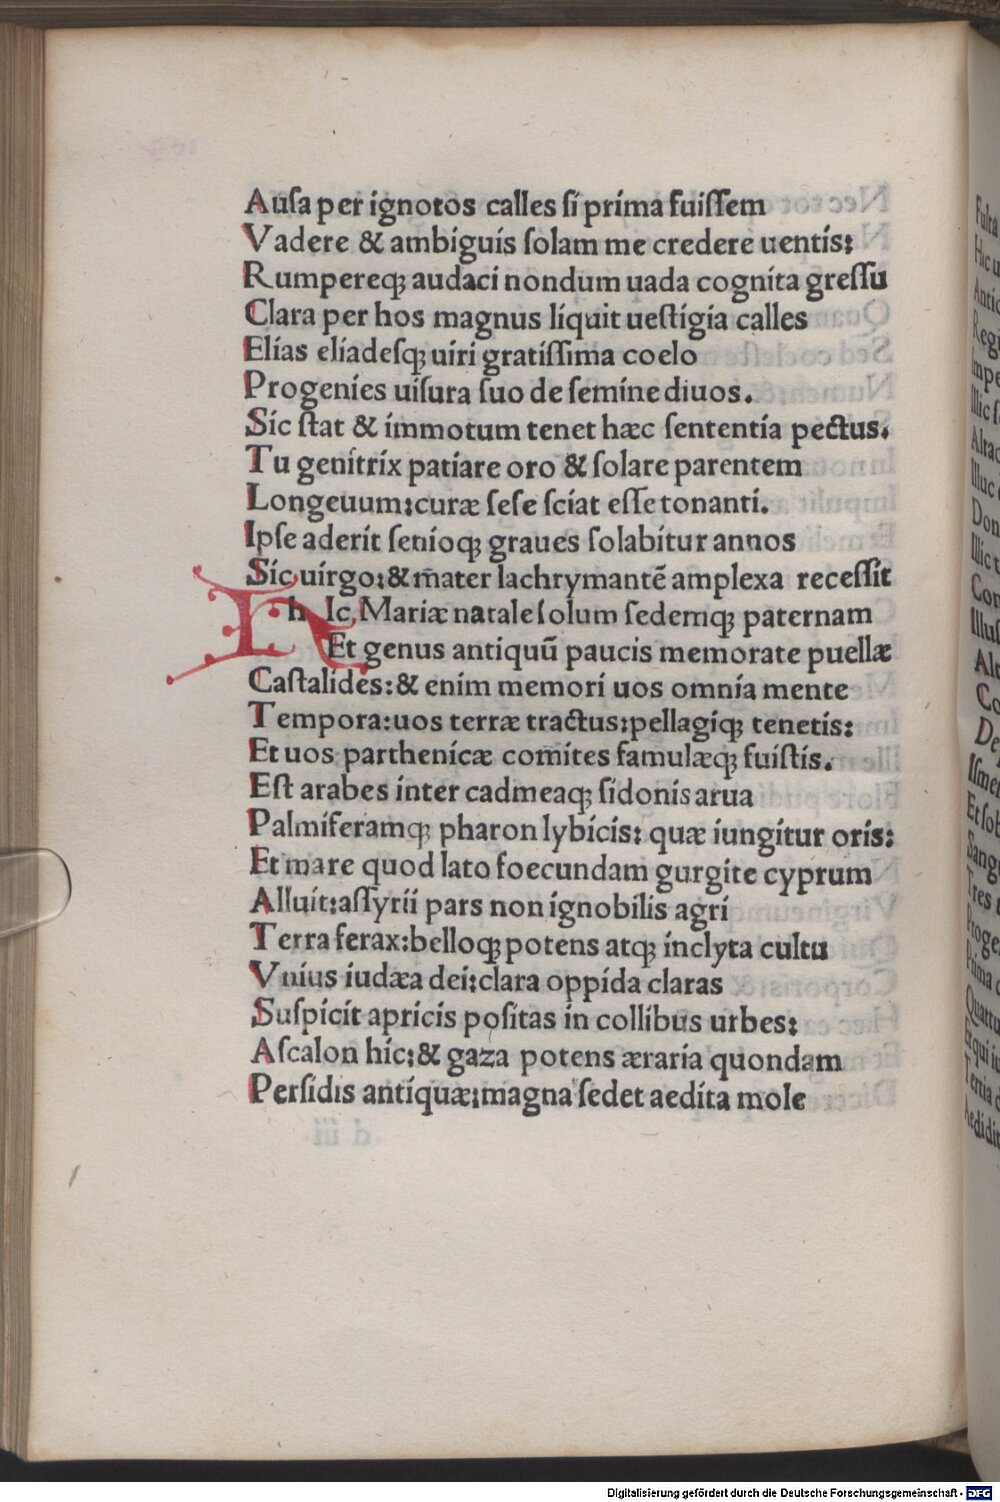 Auſa per ignotos calles ſi prima fuiſſem
Vadere & ambiguis ſolam me credere uentis:
Rumpereqꝫ audaci nondum uada cognita greſſu
Clara per hos magnus liquit ueſtigia calles
Elias eliadeſqꝫ uiri gratiſſima coelo
Progenies uiſura ſuo de ſemine diuos.
Sic ſtat & immotum tenet hæc ſententia pectus.
Tu genitrix patiare oro & ſolare parentem
Longeuum:curæ ſeſe ſciat eſſe tonanti.
Ipſe aderit ſenioqꝫ graues ſolabitur annos
Sic uirgo:& m̄ater lachrymantē amplexa receſſit
h Ic Mariæ natale ſolum ſedemqꝫ paternam
Et genus antiquū paucis memorate puellæ
Caſtalides:& enim memori uos omnia mente
Tempora:uos terræ tractus:pellagiqꝫ tenetis:
Et uos parthenicæ comites famulæqꝫ fuiſtis.
Eſt arabes inter cadmeaqꝫ ſidonis arua
Palmiferamqꝫ pharon lybicis: quæ iungitur oris:
Et mare quod lato foecundam gurgite cyprum
Alluit:aſſyrii pars non ignobilis agri
Terra ferax:belloqꝫ potens atqꝫ inclyta cultu
Vnius iudæa dei:clara oppida claras
Suſpicit apricis poſitas in collibus urbes:
Aſcalon hic:& gaza potens æraria quondam
Perſidis antiquæ:magna ſedet aedita mole
Digitalisierung gefördert durch die Deutsche Forschungsgemeinschaft - DFG